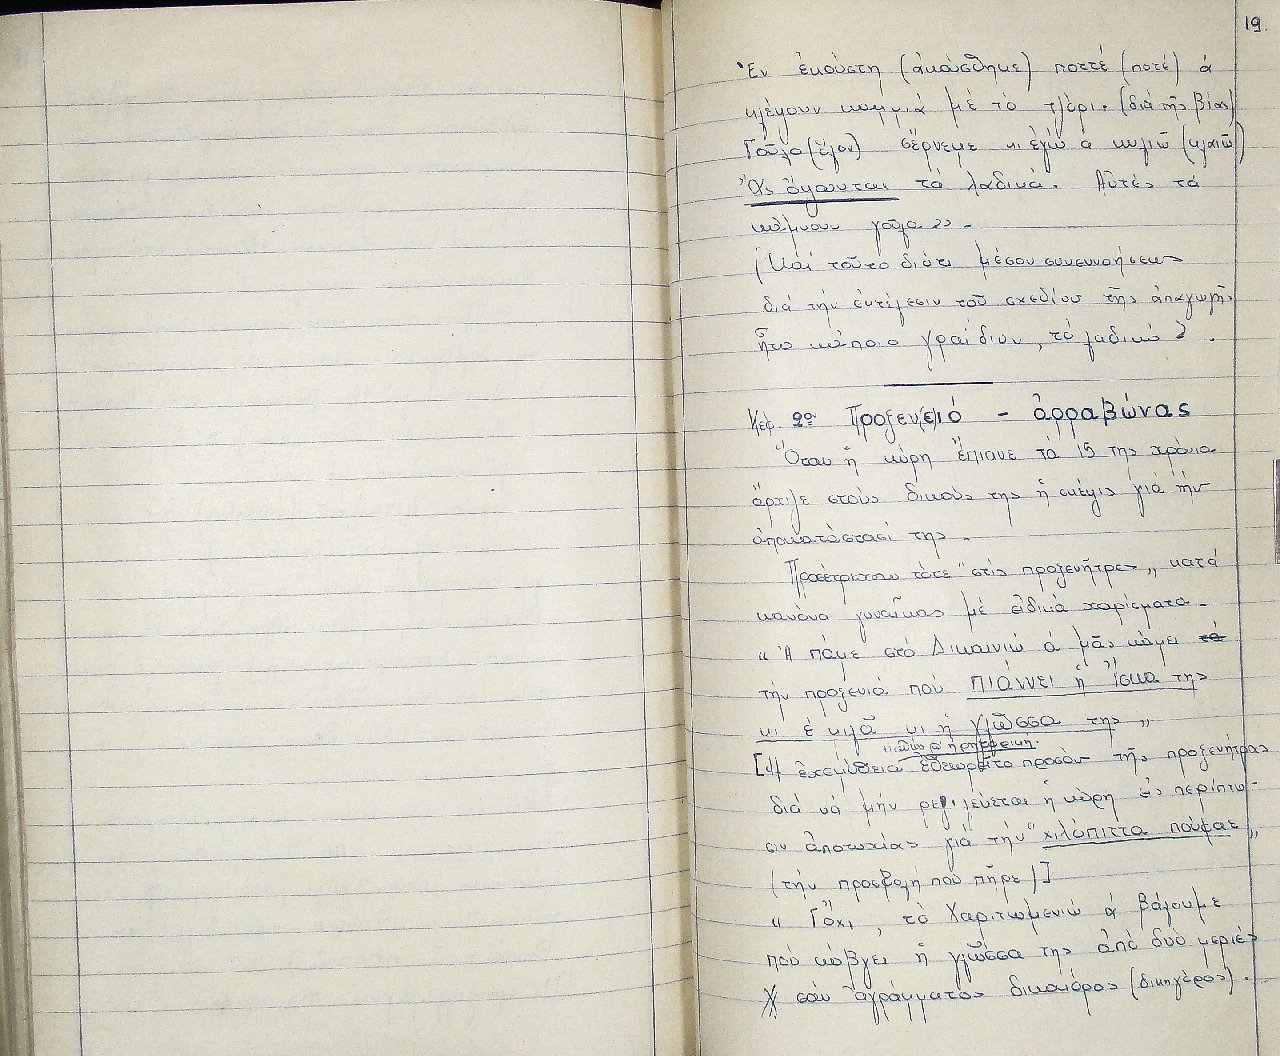 19.
Ἐν ἐκούστη (ἀκούσθηκε) ποττέ (ποτέ) ἀ
κλέψουν καμμιά μέ τό τλέρι. (διά τῆς βίας)
Γοῦλο (ὅλον) σέρνεμε κι ἐγιώ ἀ κυλιῶ (κλαιῶ)
Ἄς ὄψουνται τά λαδικά. Αὐτές τά
κάμνουν γοῦλα» -
(Καί τοῦτο διότι μέσον συνεννοήσεως
διά τήν ἐκτέλεσιν τοῦ σχεδίου τῆς ἀπαγωγῆς
ἦτο κάποιο γραΐδιον, τό λαδικό).
Κεφ. 2ο Προξεν(ε)ιό - ἀρραβώνας
Ὅταν ἡ κόρη ἔπιανε τά 15 της χρόνια
ἄρχιζε στούς δικούς της ἡ σκέψις γιά τήν
ἀποκατάστασί της.
Προέτρεχαν τότε "στίς προξενῆτρες" κατά
κανόνα γυναῖκας μέ εἰδικά χαρίσματα.
«Ἀ πᾶμε στό Δικαινιώ ἀ μᾶς κάμει τά
τήν προξενιά πού πιάννει ἡ ἴσκα της
κι ἐ κιλᾶ κι ἡ γλῶσσα της"
[Ἡ ἐχεμύθεια ἐθεωρεῖτο προσόν τῆς προξενήτρας
διά νά μήν ρεζιλεύεται ἡ κόρη εἰς περίπτω-
σιν ἀποτυχίας γιά τήν "χιλόπιττα πούφαε"
(τήν προσβολή πού πῆρε)]
«Γιόχι, τό Χαριτωμενιώ ἀ βάλουμε
πού κόβγει ἡ γλῶσσα της ἀπό δυό μεριές
σάν ἀγράμματος δικαιόρος (δικηγόρος).